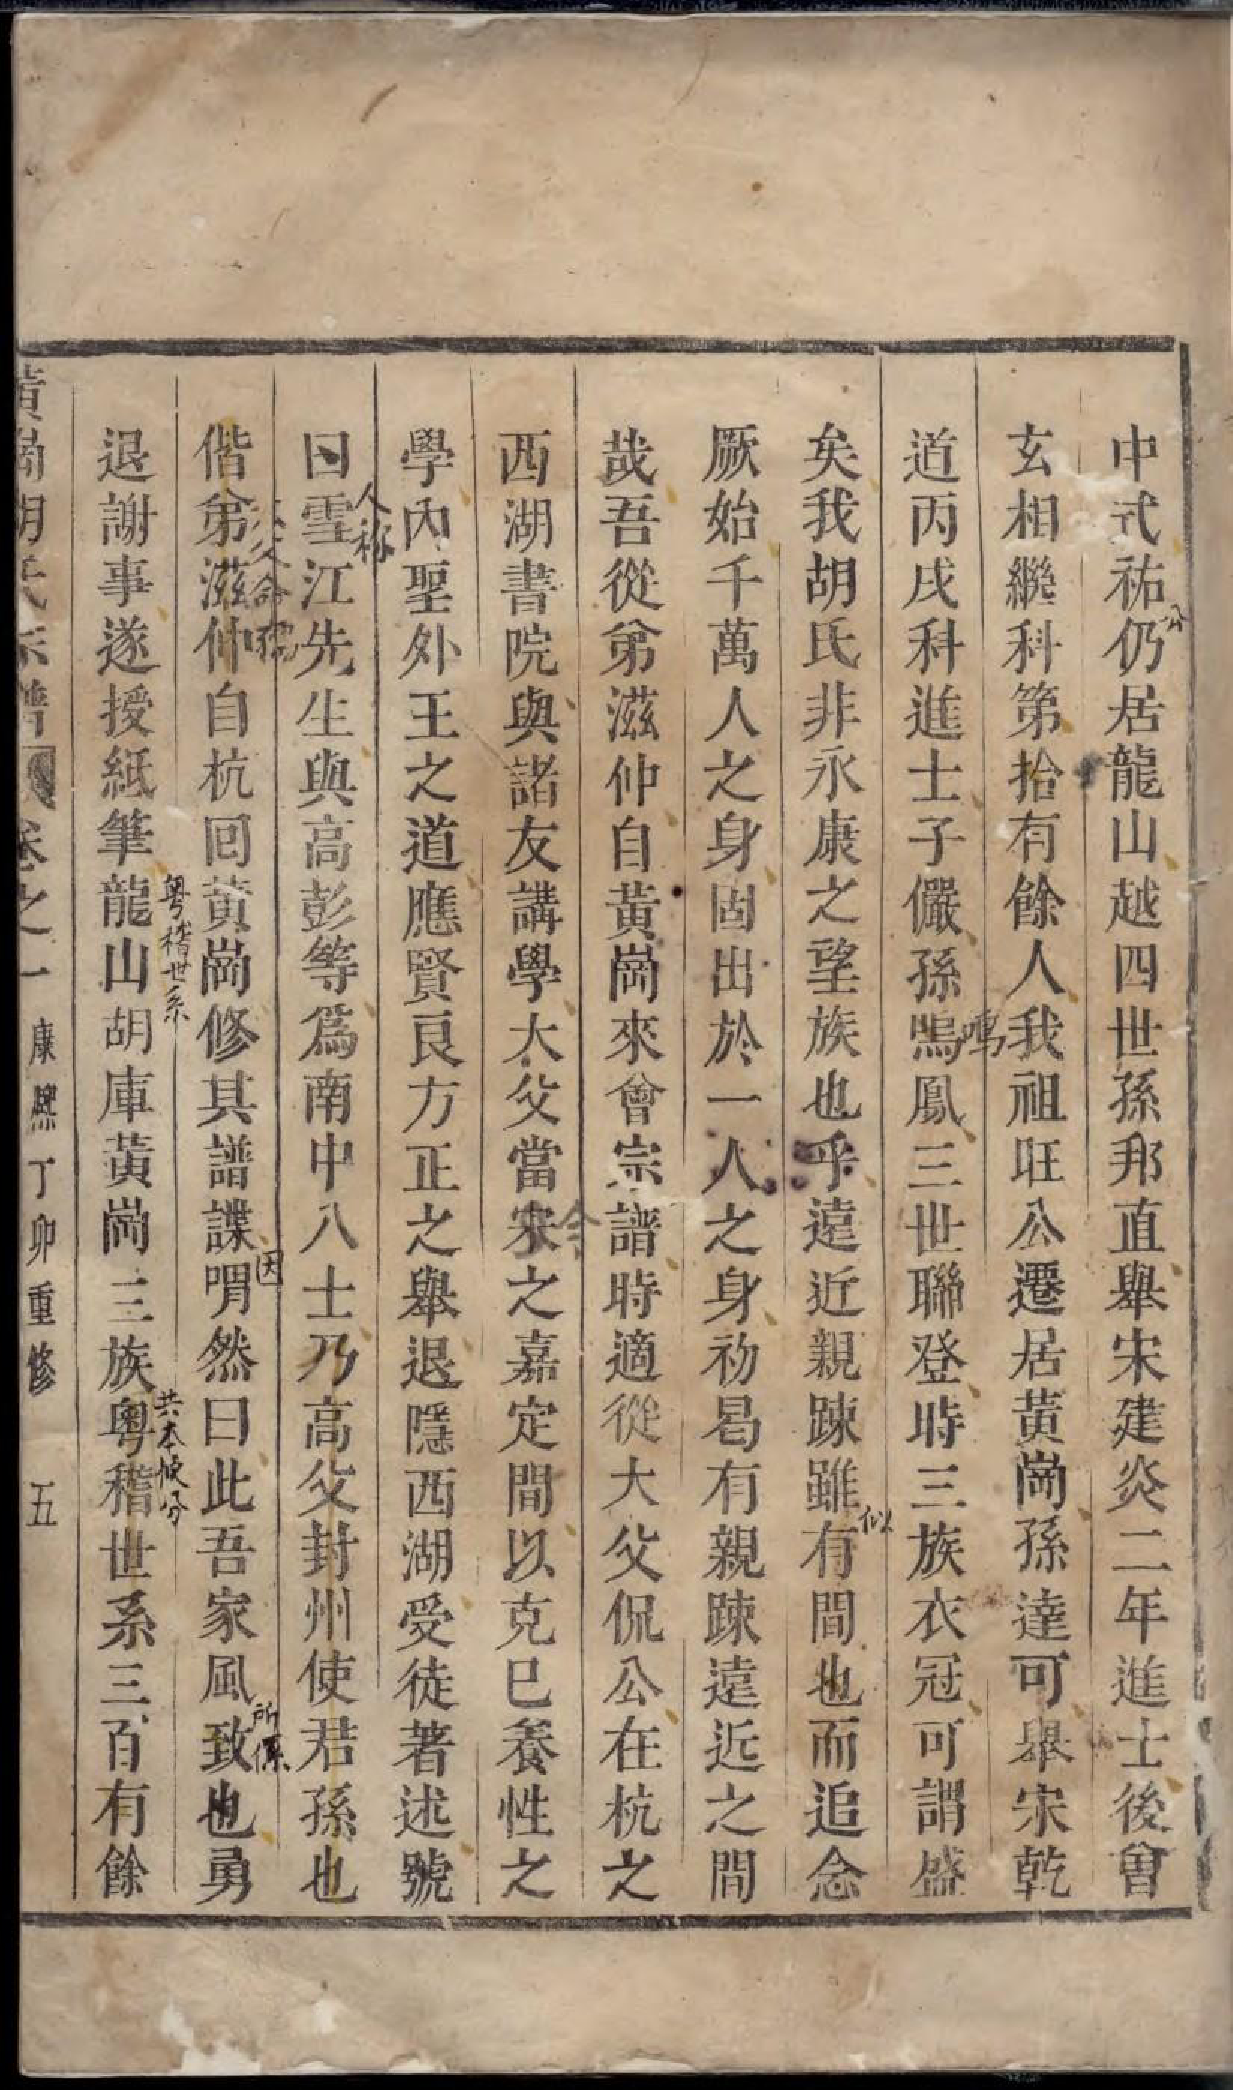 中式祐仍居龍山越四世孫邦直舉宋建炎二年進士後曾
公
玄相繼科第拾有餘人我祖旺公遷居黃崗孫達可舉宋乾
道丙戌科進士子儼孫鳴鳳三世聯登時三族衣冠可謂盛
鳴
矣我胡氏非永康之望族也乎遠近親踈雖有間也而追念
似
厥始千萬人之身固出於一人之身初曷有親踈遠近之間
哉吾從弟滋仲自黃崗來會宗譜時適從大父侃公在杭之
西湖書院與諸友講學大父當宋之嘉定間以克巳養性之
學內聖外王之道應賢良方正之舉退隱西湖受徒著述號
曰雪江先生與高彭等爲南中八士乃高父封州使君孫也
人称
偕弟滋仲自杭回黃崗修其譜諜喟然曰此吾家風致也勇
因
所係
退謝事遂授紙筆龍山胡庫黃崗三族粤稽世系三百有餘
粵稽世系
共本
黃崗胡氏宗譜 卷之一 康熙丁卯重修 五